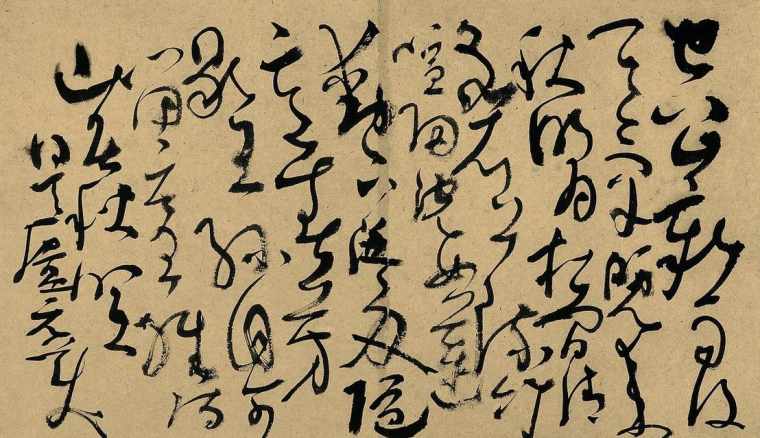 空山新雨後
天氣晚來
秋明月松間清
泉石上流竹
喧歸浣女蓮
動下漁舟隨
意春芳
歇王孫自可
留唐王維詩
山居秋暝